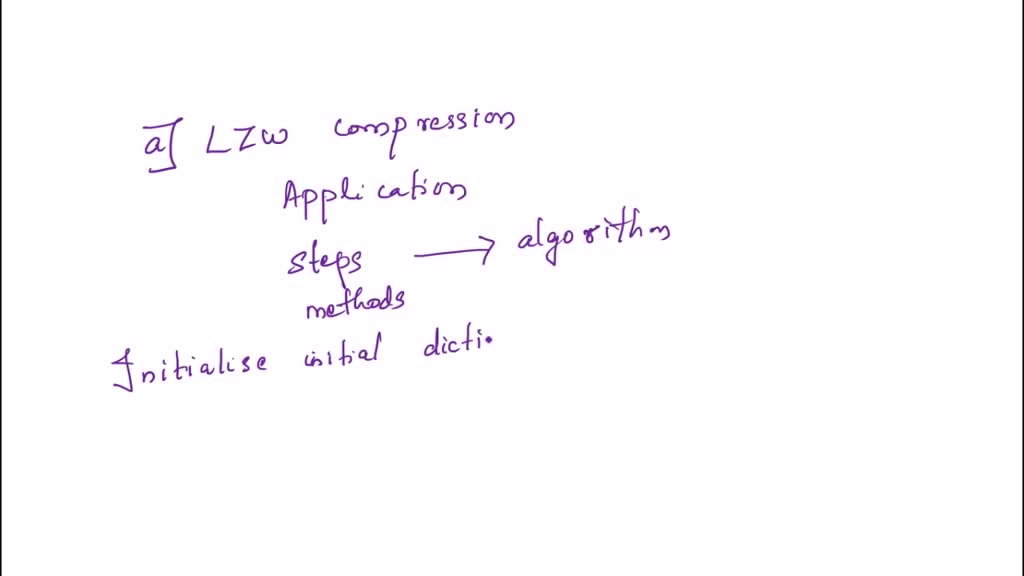 a] LZW compression
Application
steps → algorithm
methods
Initialise initial dicti